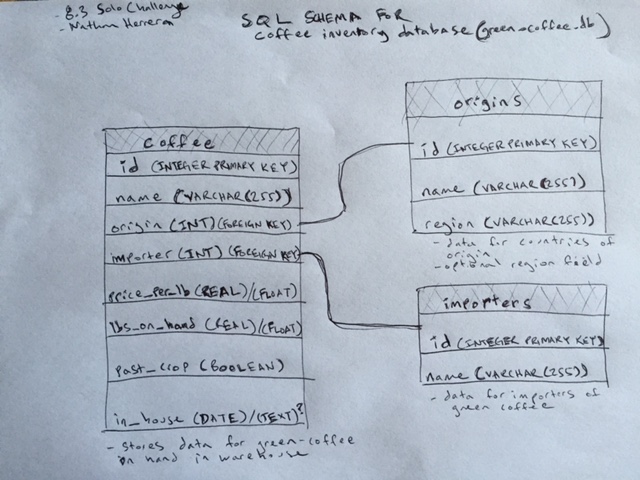 - 8.3 Solo Challenge
- Nathan Herrera
SQL SCHEMA FOR
coffee inventory database (green-coffee.db)
coffee
id (INTEGER PRIMARY KEY)
name (VARCHAR(255))
origin (INT) (FOREIGN KEY)
importer (INT) (FOREIGN KEY)
price_per_lb (REAL)/(FLOAT)
lbs_on_hand (REAL)/(FLOAT)
past_crop (BOOLEAN)
in_house (DATE)/(TEXT)?
- stores data for green-coffee
on hand in warehouse
origins
id (INTEGER PRIMARY KEY)
name (VARCHAR(255))
region (VARCHAR(255))
- data for countries of
origin
- optional region field
importers
id (INTEGER PRIMARY KEY)
name (VARCHAR(255))
- data for importers of
green coffee